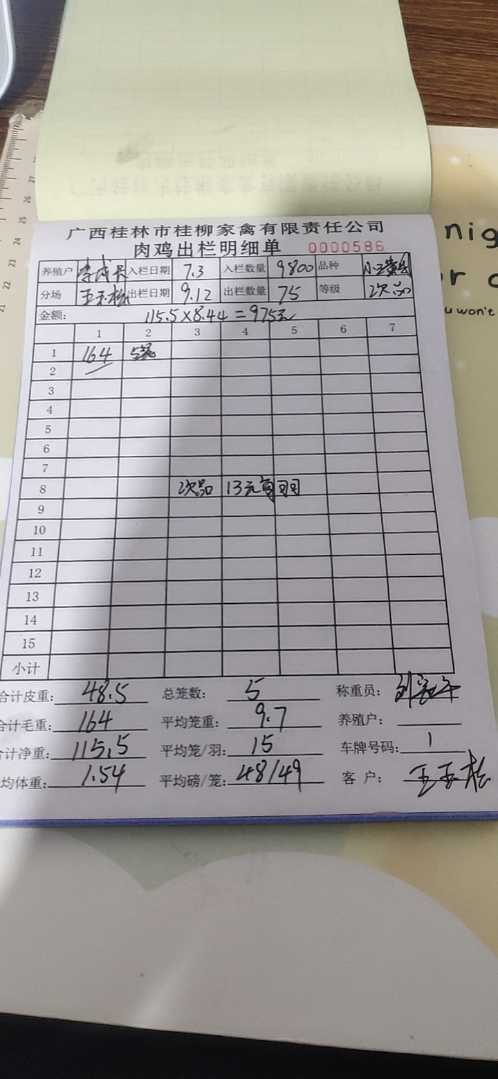 广西桂林市桂柳家禽有限责任公司
肉鸡出栏明细单 0000586
养殖户 李成 入栏日期 7.3 入栏数量 9800 品种
分场 王玉松 出栏日期 9.12 出栏数量 75 等级 次品
金额: 115.5×8.44=975元
1 2 3 4 5 6 7
1 164 5笼
2
3
4
5
6
7
8 次品 13元每羽
9
10
11
12
13
14
15
小计
合计皮重: 48.5 总笼数: 5 称重员:
合计毛重: 164 平均笼重: 9.7 养殖户:
合计净重: 115.5 平均笼/羽: 15 车牌号码: 1
均体重: 1.54 平均磅/笼: 48/49 客户: 王玉松
nig
r c
u won't